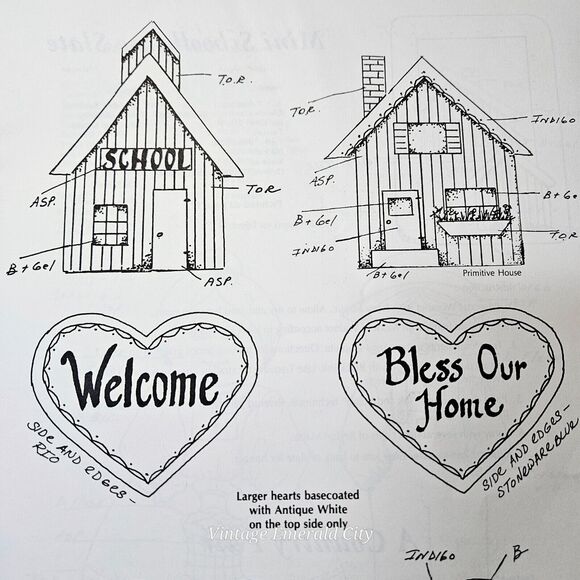 T.O.R.
SCHOOL
ASP.
TOR
B + Gel
ASP.
TOR.
INDIGO
ASP.
B + Gel
B + Ge
INDIGO
T.O.R
B + Gel
Primitive House
Welcome
SIDE AND EDGES-
RIO
Bless Our
Home
SIDE AND EDGES-
STONEWARE BLUE
Larger hearts basecoated
with Antique White
on the top side only
Vintage Emerald City
INDIGO
B